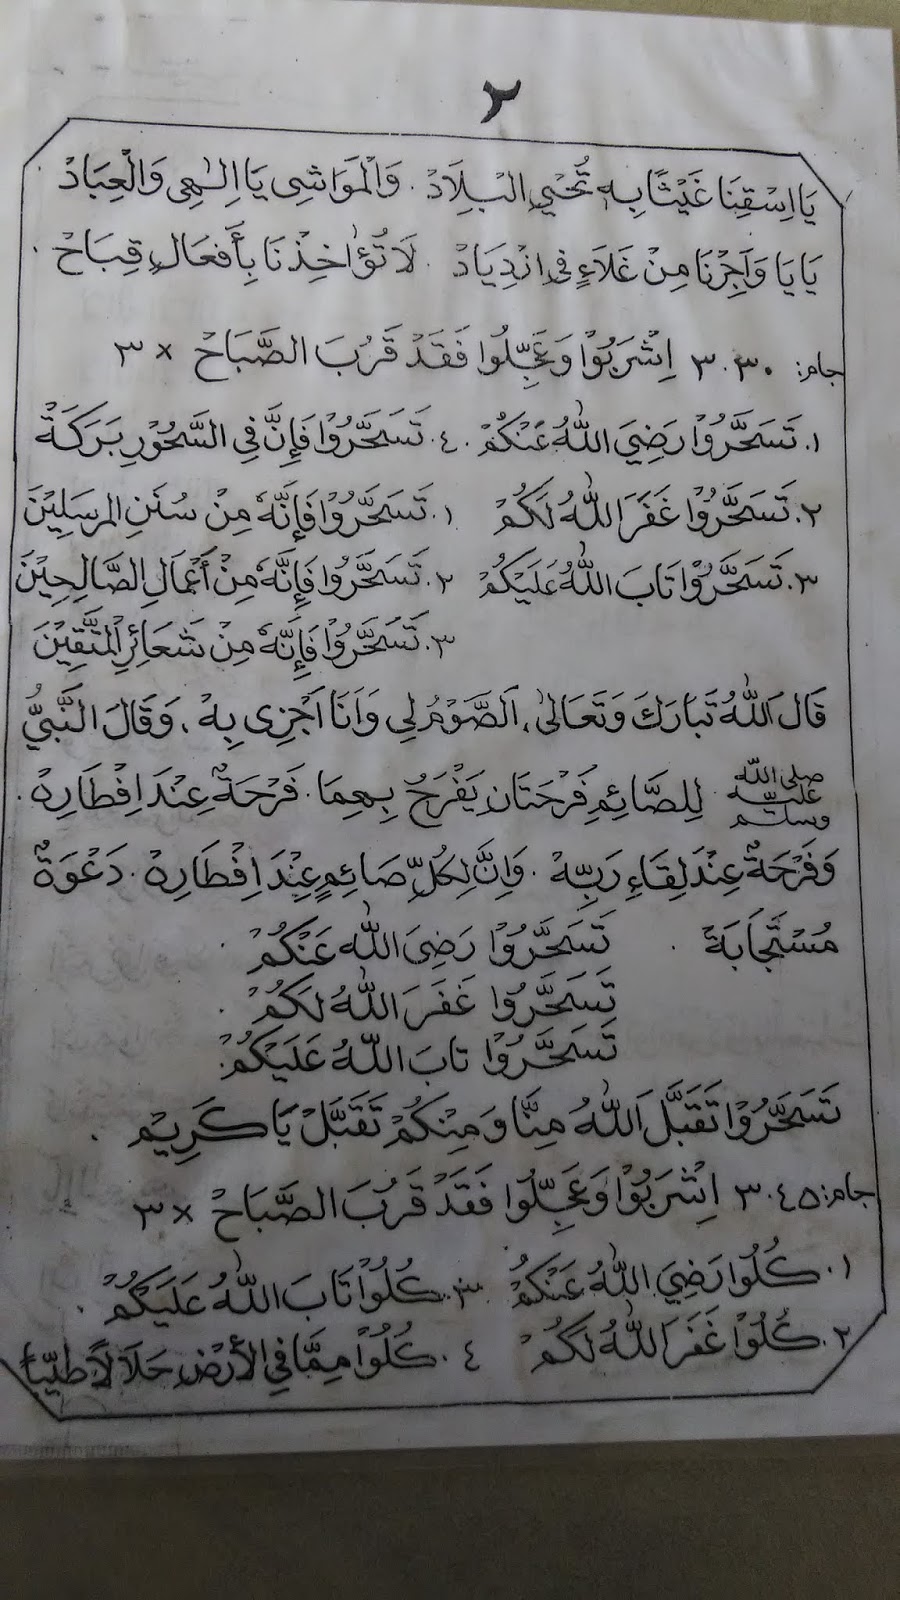 ٢
يَا اِسْقِنَا غَيْثًا بِهِ تُحْيِ الْبِلَادْ . وَالْمَوَاشِى يَا اِلٰهِى وَالْعِبَادْ
يَا يَا وَاَجِرْنَا مِنْ غَلَاءٍ فِى ازْدِيَادْ . لَا تُؤَاخِذْنَا بِأَفْعَالٍ قِبَاحْ .
جام: ٣.٣٠ اِشْرَبُوْا وَعَجِّلُوا فَقَدْ قَرُبَ الصَّبَاحْ × ٣
١. تَسَحَّرُوْا رَضِيَ اللهُ عَنْكُمْ . ٤. تَسَحَّرُوْا فَإِنَّ فِى السَّحُوْرِ بَرَكَةْ
٢. تَسَحَّرُوْا غَفَرَ اللهُ لَكُمْ ١. تَسَحَّرُوْا فَإِنَّهُ مِنْ سُنَنِ المرسَلِيْنَ
٣. تَسَحَّرُوْا تَابَ اللهُ عَلَيْكُمْ ٢. تَسَحَّرُوْا فَإِنَّهُ مِنْ أَعْمَالِ الصَّالِحِيْنَ
٣. تَسَحَّرُوْا فَإِنَّهُ مِنْ شَعَائِرِ الْمُتَّقِيْنَ
قَالَ اللهُ تَبَارَكَ وَتَعَالىٰ، اَلصَّوْمُ لِى وَاَنَا اَجْزِى بِهْ ، وَقَالَ النَّبِيُّ
صلى الله عليه وسلم لِلصَّائِمِ فَرْحَتَانِ يَفْرَحُ بِهِمَا . فَرْحَةٌ عِنْدَ اِفْطَارِهْ .
وَفَرْحَةٌ عِنْدَ لِقَاءِ رَبِّهْ . وَاِنَّ لِكُلِّ صَائِمٍ عِنْدَ اِفْطَارِهْ . دَعْوَةٌ
مُسْتَجَابَةْ . تَسَحَّرُوْا رَضِيَ اللهُ عَنْكُمْ .
تَسَحَّرُوا غَفَرَ اللهُ لَكُمْ .
تَسَحَّرُوْا تابَ اللهُ عَلَيْكُمْ .
تَسَحَّرُوْا تَقَبَّلَ اَللهُ مِنَّا وَمِنْكُمْ تَقَبَّلْ يَا كَرِيْم .
جام: ٣.٤٥ اِشْرَبُوْا وَعَجِّلُوا فَقَدْ قَرُبَ الصَّبَاحْ × ٣
١. كُلُوا رَضِيَ اللهُ عَنْكُمْ ٣. كُلُوْا تَابَ اللهُ عَلَيْكُمْ .
٢. كُلُوْا غَفَرَ اللهُ لَكُمْ ٤. كُلُوْا مِمَّا فِي الْأَرْضِ حَلَالًا طَيِّبًا